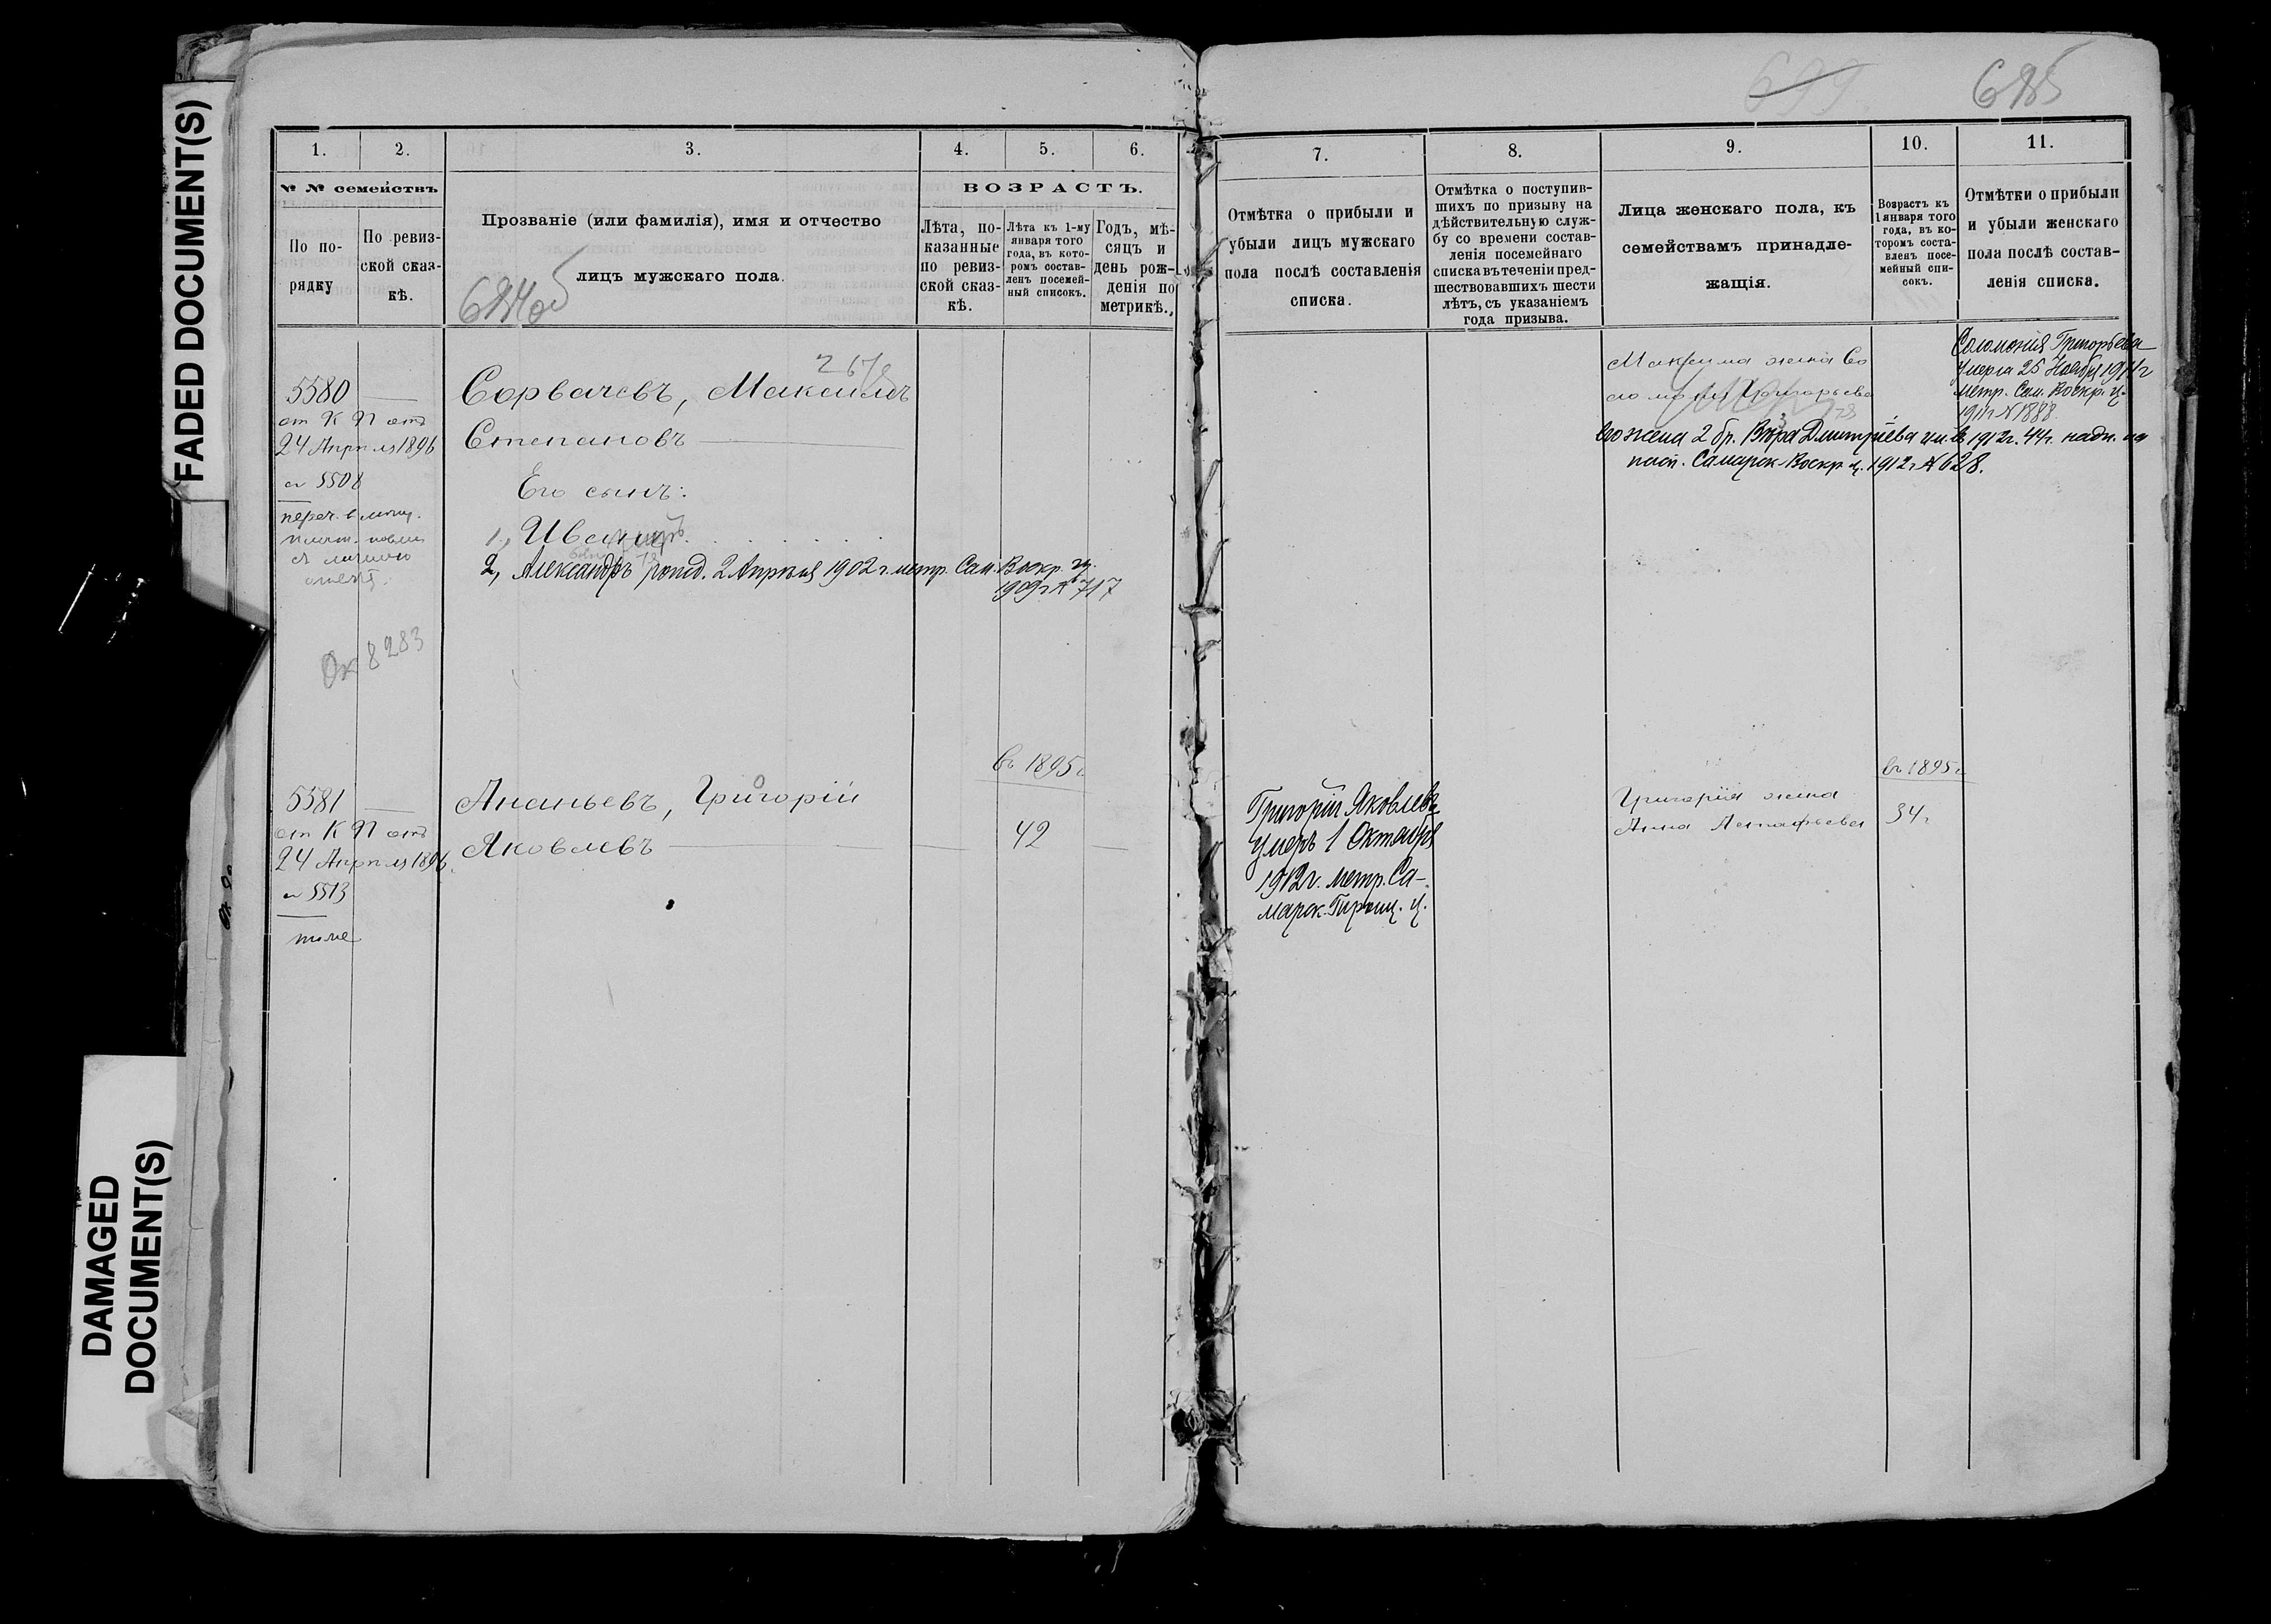 FAADED DOCUMENT(S)
DAMAGED
DOCUMENT(S)
1.
2.
3.
4.
5.
6.
№ № семействъ
По по-
рядку
По ревиз-
ской сказ-
кѣ.
Прозваніе (или фамилія), имя и отчество
лицъ мужскаго пола.
ВОЗРАСТЪ.
Лѣта, по-
казанные
по ревиз-
ской сказ-
кѣ.
Лѣта къ 1-му
января того
года, въ кото-
ромъ состав-
ленъ посемей-
ный списокъ.
Годъ, мѣ-
сяцъ и
день рож-
денія по
метрикѣ.
684об
267
5580
от К П отъ
24 Апрѣля 1896
№ 5508
Сорвачевъ, Максимъ
Степановъ
Его сынъ:
1, Иванъ
2, Александръ рожд. 2 Апрѣля 1902 г. метр. Сам. Воскр. ц.
1909 г № 717
Ок 8283
5581
от К П отъ
24 Апрѣля 1896
№ 5513
тоже
Ананьевъ, Григорій
Яковлевъ
въ 1895 г
42
685
7.
8.
9.
10.
11.
Отмѣтка о прибыли и
убыли лицъ мужскаго
пола послѣ составленія
списка.
Отмѣтка о поступив-
шихъ по призыву на
дѣйствительную служ-
бу со времени состав-
ленія посемейнаго
списка въ теченіи пред-
шествовавшихъ шести
лѣтъ, съ указаніемъ
года призыва.
Лица женскаго пола, къ
семействамъ принадле-
жащія.
Возрастъ къ
1 января того
года, въ ко-
торомъ соста-
вленъ посе-
мейный спи-
сокъ.
Отмѣтки о прибыли
и убыли женскаго
пола послѣ состав-
ленія списка.
Максима жена Со
ломонія Григорьева
Соломонія Григорьева
умерла 25 Ноября 1911 г
метр. Сам. Воскр. ц.
1911 г № 188
Его жена 2 бр. Вѣра Дмитріева въ 1912 г. 44 г.
Самарск. Воскр. ц. 1912 г № 628.
Григорій Яковлевъ
умеръ 1 Октября
1912 г. метр. Са-
марск. Троиц. ц.
Григорія жена
Анна Астафьева
въ 1895 г
34 г